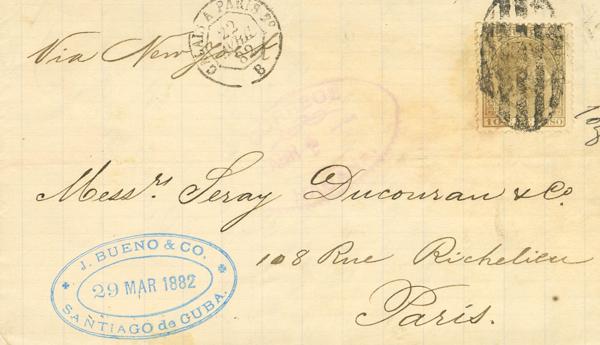 Via New York
CALAIS A PARIS 2º
22
AVRIL
82
B
10 PESO
108
Messrs Seray Ducouran & Co
108 Rue Richelieu
Paris.
J. BUENO & CO.
29 MAR 1882
SANTIAGO de CUBA.